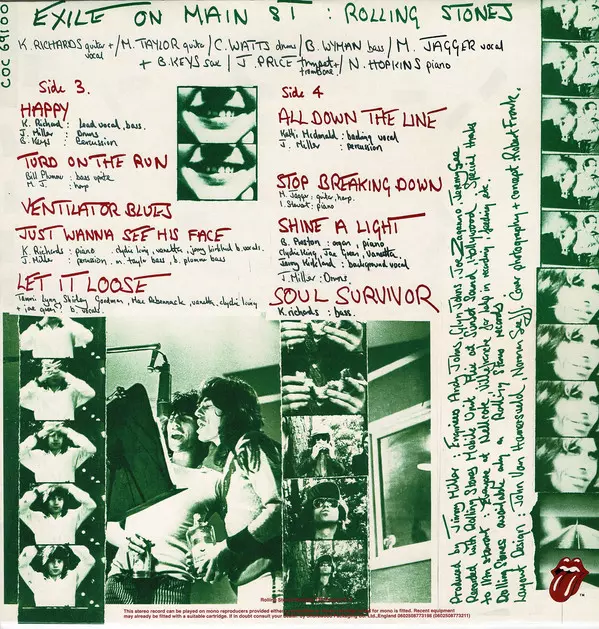 EXILE ON MAIN ST : ROLLING STONES
COC 69100
K. RICHARDS guitar + vocal / M. TAYLOR guitar / C. WATTS drums / B. WYMAN bass / M. JAGGER vocal
+ B. KEYS sax / J. PRICE trumpet + trombone / N. HOPKINS piano
Side 3.
HAPPY
K. Richard : lead vocal, bass.
J. Miller : Drums
B. Keys : Percussion
TURD ON THE RUN
Bill Plummer : bass
M. J. : harp
VENTILATOR BLUES
JUST WANNA SEE HIS FACE
K. Richards : piano clydie king, vanetta, jerry kirkland b. vocals.
J. Miller : percussion. m. taylor bass, b. plummer bass
LET IT LOOSE
Tammi Lynn, Shirley Goodman, Mac Rebennack, vanetta, clydie king
+ joe green : b. vocals.
Side 4
ALL DOWN THE LINE
Kathi Mcdonald : backing vocal
J. Miller : percussion
STOP BREAKING DOWN
M. Jagger : guitar, harp.
I. Stewart : piano
SHINE A LIGHT
B. Preston : organ, piano
Clydie King, Joe Green, Vanetta,
Jerry Kirkland : background vocal
J. Miller : Drums
SOUL SURVIVOR
K. richards : bass.
Produced by Jimmy Miller : Engineers Andy Johns Glyn Johns Joe Zagarino Jeremy Gee
Recorded with Rolling Stones Mobile Unit Mixed at Sunset Sound, Hollywood. Special thanks
to Ian stewart + everyone at Nellcote, Villefranche for help in recording, feeding etc.
Rolling Stones available only on Rolling Stones records
Layout Design : John Van Hamersveld, Norman Seeff Cover photography + concept Robert Frank.
This stereo record can be played on mono reproducers provided either for mono is fitted. Recent equipment
may already be fitted with a suitable cartridge. If in doubt consult your Ltd. England